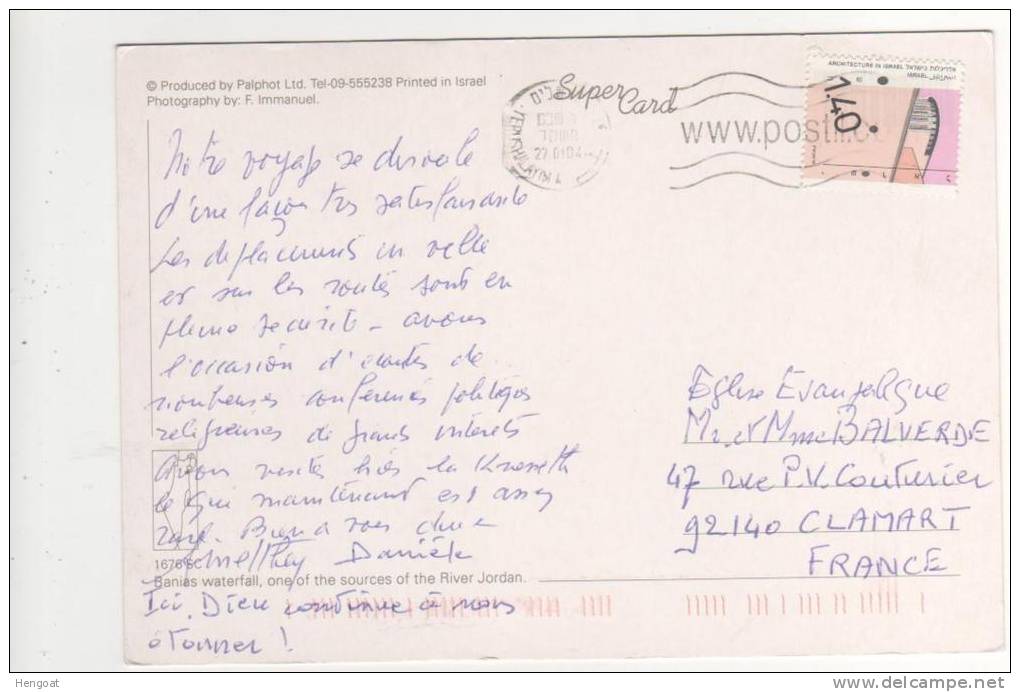 © Produced by Palphot Ltd. Tel-09-555238 Printed in Israel
Photography by: F. Immanuel.
Super Card
www.postil.co
ARCHITECTURE IN ISRAEL
ISRAEL
1.40
JERUSALEM
27.01.04
Notre voyage se déroule
d'une façon très satisfaisante
Les déplacements en ville
et sur les routes sont en
pleine sécurité - avons
l'occasion d'écouter de
nombreuses conférences politiques
religieuses de grands intérêts
Avons visité hier la Knesseth
ce qui maintenant est assez
rare. Bien à vous deux
Danièle
Ici, Dieu continue à nous
étonner !
1676 SC
Banias waterfall, one of the sources of the River Jordan.
Eglise Evangélique
Mr et Mme BALVERDE
47 rue P.V. Couturier
92140 CLAMART
FRANCE
Hengoat
www.delcampe.net